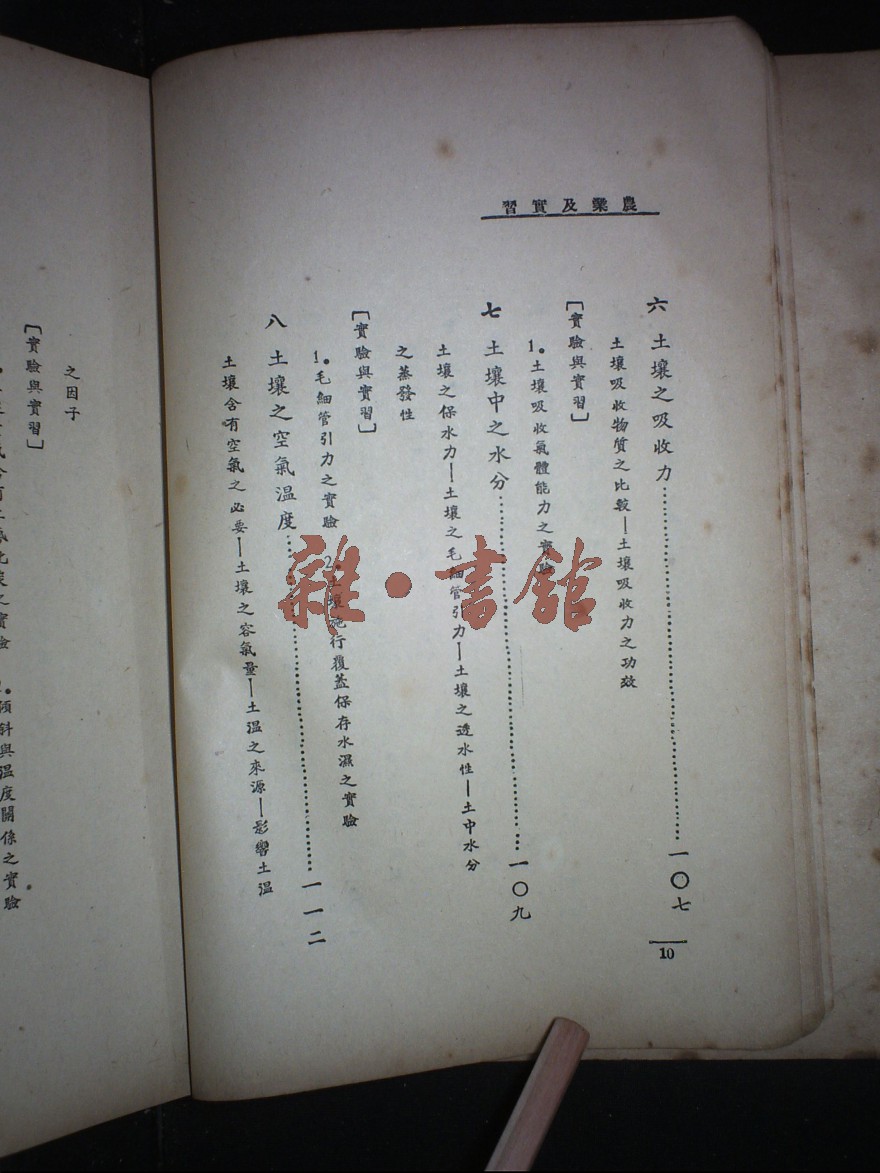 農業及實習
六 土壤之吸收力……一〇七
土壤吸收物质之比較—土壤吸收力之功效
[實驗與實習]
1.土壤吸收氣體能力之實驗
七 土壤中之水分……一〇九
土壤之保水力—土壤之毛細管引力—土壤之透水性—土中水分
之蒸發性
[實驗與實習]
1.毛細管引力之實驗 2.土壤施行覆蓋保存水濕之實驗
八 土壤之空氣温度……一一二
土壤含有空氣之必要—土壤之容氣量—土温之來源—影響土温
10
之因子
[實驗與實習]
傾斜與温度關係之實驗。
雜·書館